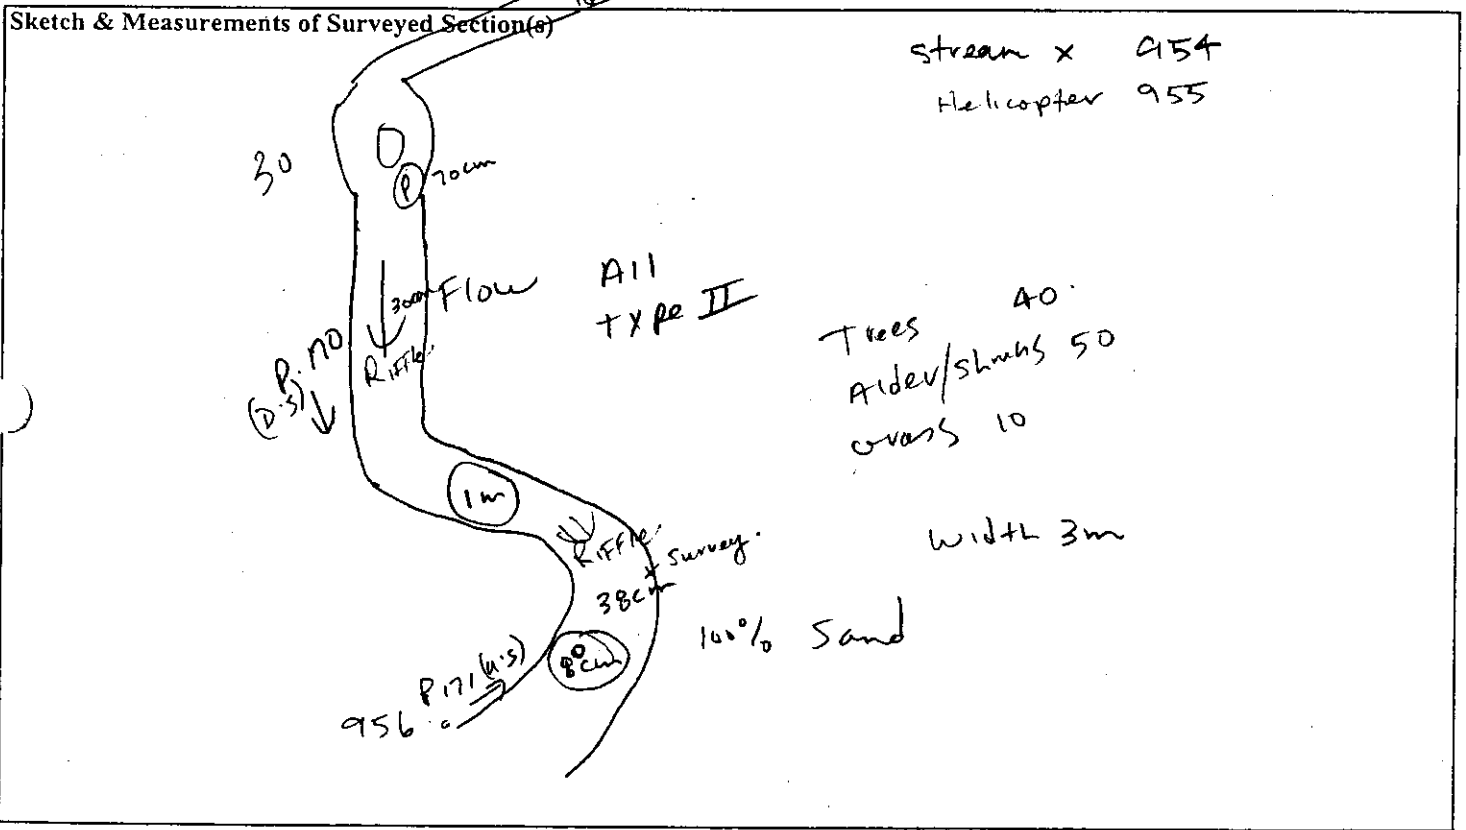 Sketch & Measurements of Surveyed Section(s)
stream x 954
Helicopter 955
30
P 70cm
30cm Flow
All
type II
P. 170
(D.S)
Riffle.
Trees 40
Alder/shrubs 50
Grass 10
1m
Riffle.
x survey.
38cm
width 3m
100% Sand
80cm
P 171 (u.s)
956